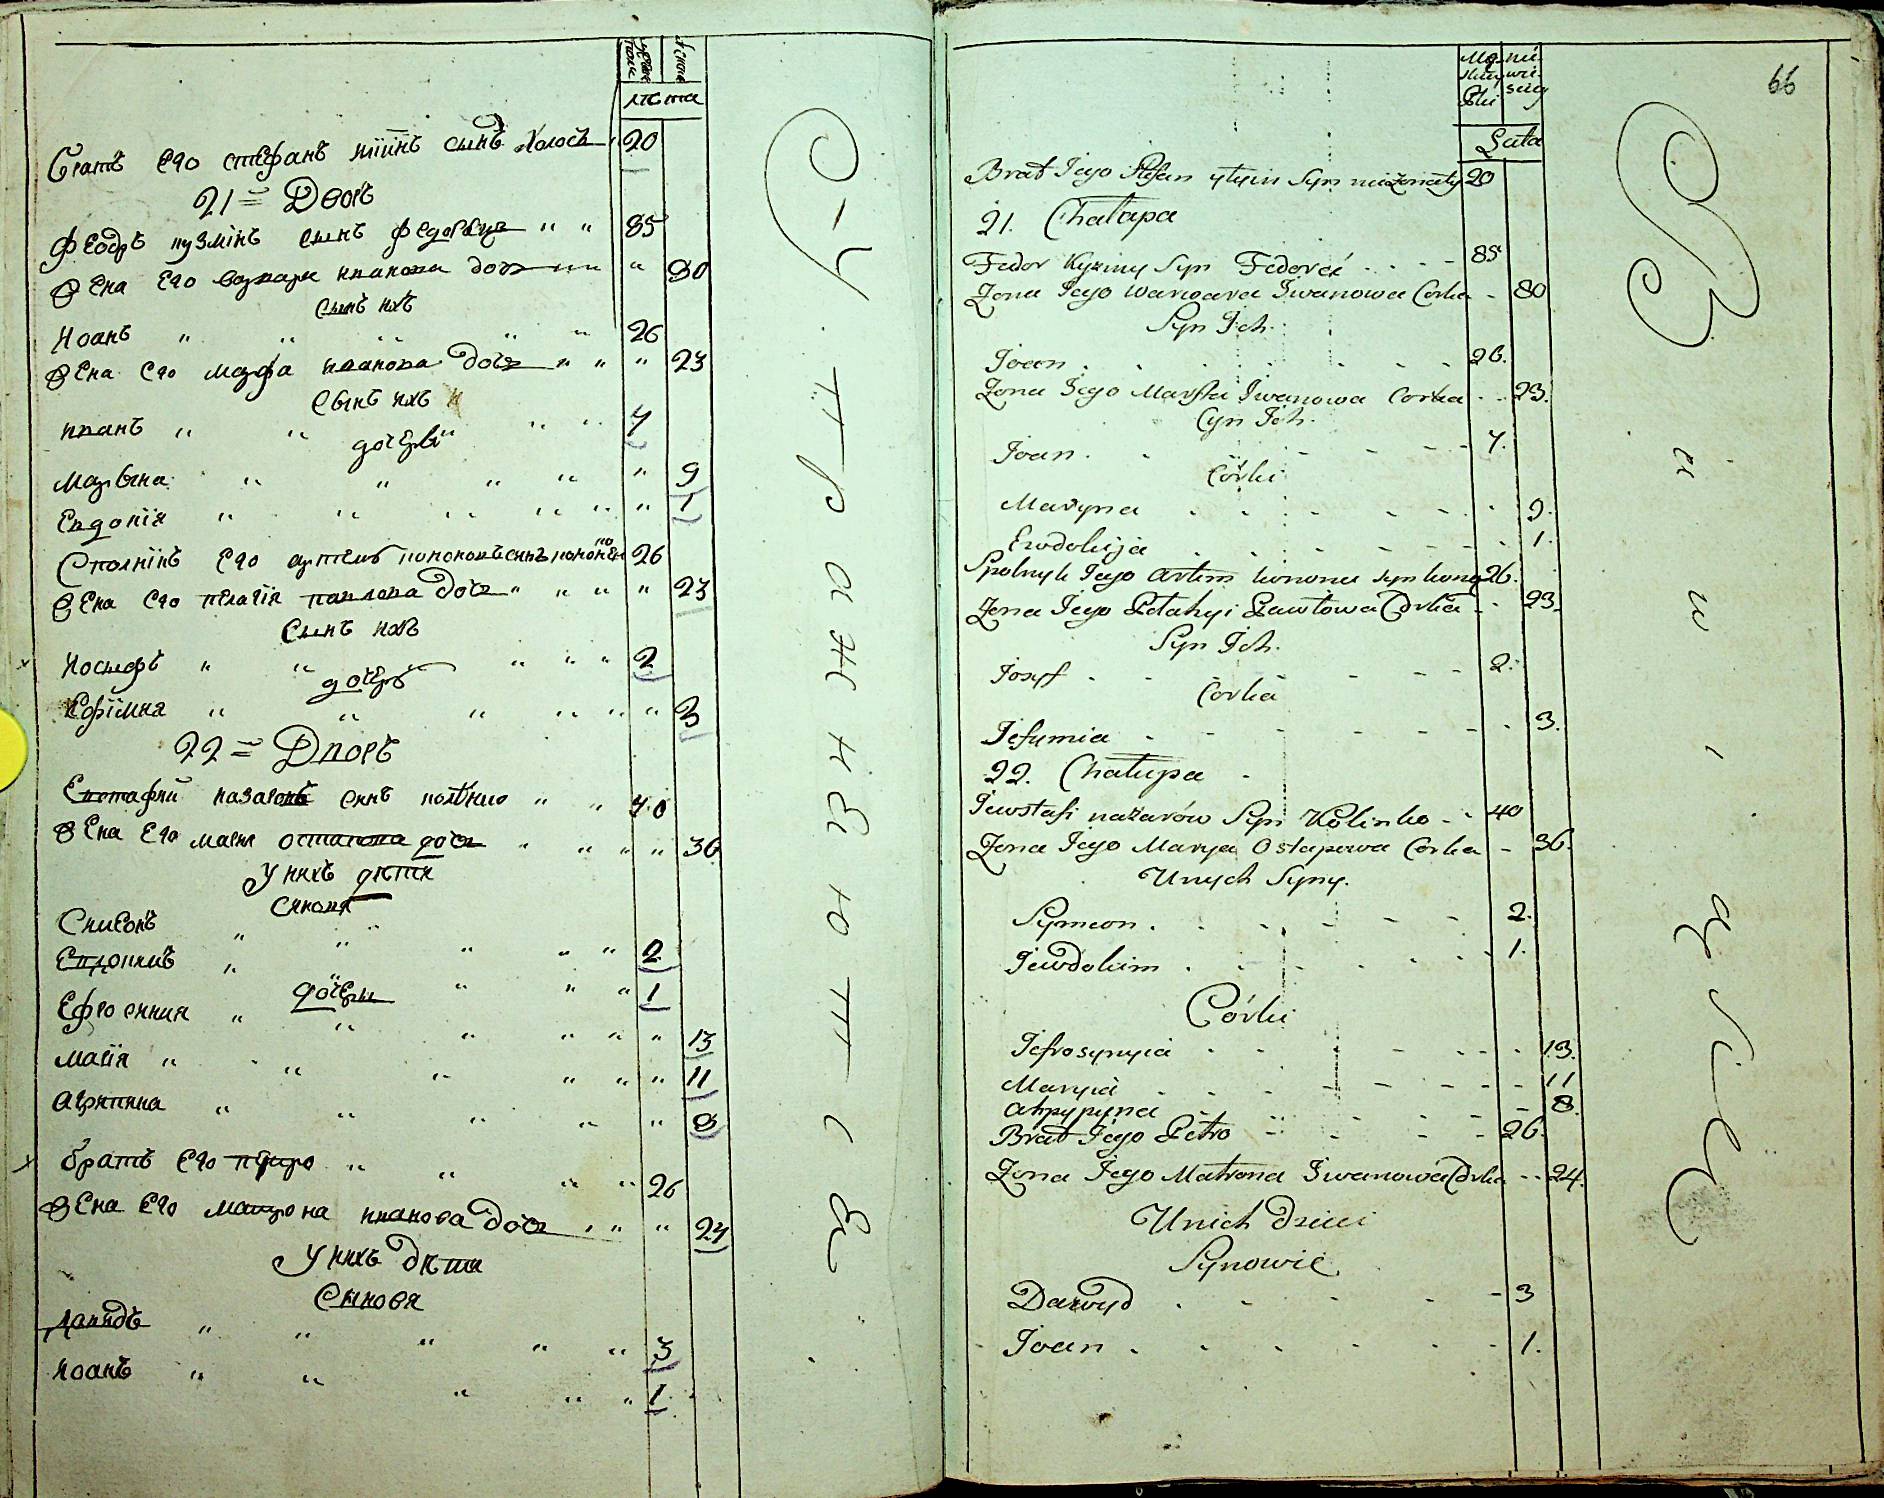 лѣта
Братъ его Стефанъ сынъ холостъ 20
21 = Дворъ
Феодръ кузмінъ сынъ Федорец " " 85
Жена Его варвара иванова дочь " " " 80
Сынъ ихъ
Иоанъ " " " " 26
Жена Его марфа иванова дочь " " " 23
Сынъ ихъ
иванъ " " " " 4
дочери
Марына " " " " " 9
Евдокія " " " " " " 1
Сполникъ Его артемъ кононовъ сынъ 26
Жена Его пелагія павлова дочь " " " " 23
Сынъ ихъ
Иосифъ " " " " " 2
дочеръ
Ефімия " " " " " " 3
22 = Дворъ
Евстафий назаровъ синъ колѣнко " " 40
Жена Его мария остапова дочь " " " " 36
У нихъ дѣти
Синовя
Симеонъ " " " " " 2
Евдокимъ " " " " 1
дочеры
Ефросиния " " " " " " 13
Марія " " " " " " " 11
Агрипина " " " " " 8
братъ Его петро " " " " 26
Жена Его матрона иванова дочь " " " 24
У нихъ дѣти
Сынове
Давидъ " " " " " 3
Иоанъ " " " " " 1
66
Lata
Brat Jego Stefan Syn nieżonaty 20
21. Chałupa
Fedor Kuzmy Syn Fedorec 85
Żona Jego Warwara Iwanowa Corka - 80
Syn Ich.
Joan. 26.
Żona Jego Marfta Iwanowa Corka 23.
Cyn Ich.
Joan. 4.
Córki
Maryna 9.
Ewdokija 1.
Spolnyk Jego Artem konona syn 26.
Żona Jego Pełahyi Pawłowa Córka 23.
Syn Ich.
Josyf 2.
Corka
Jefumia 3.
22. Chałupa
Jewstafi nazarów Syn Kolinko 40
Żona Jego Marya Ostapowa Corka - 36.
Unych Syny.
Symeon. 2.
Jewdokim 1.
Córki
Jefrosynyia 13.
Maryia 11
Ahrypyna 8.
Brat Jego Petro 26.
Żona Jego Matrona Iwanowa Córka 24.
Unich dzieci
Synowie
Dawyd 3
Joan. 1.